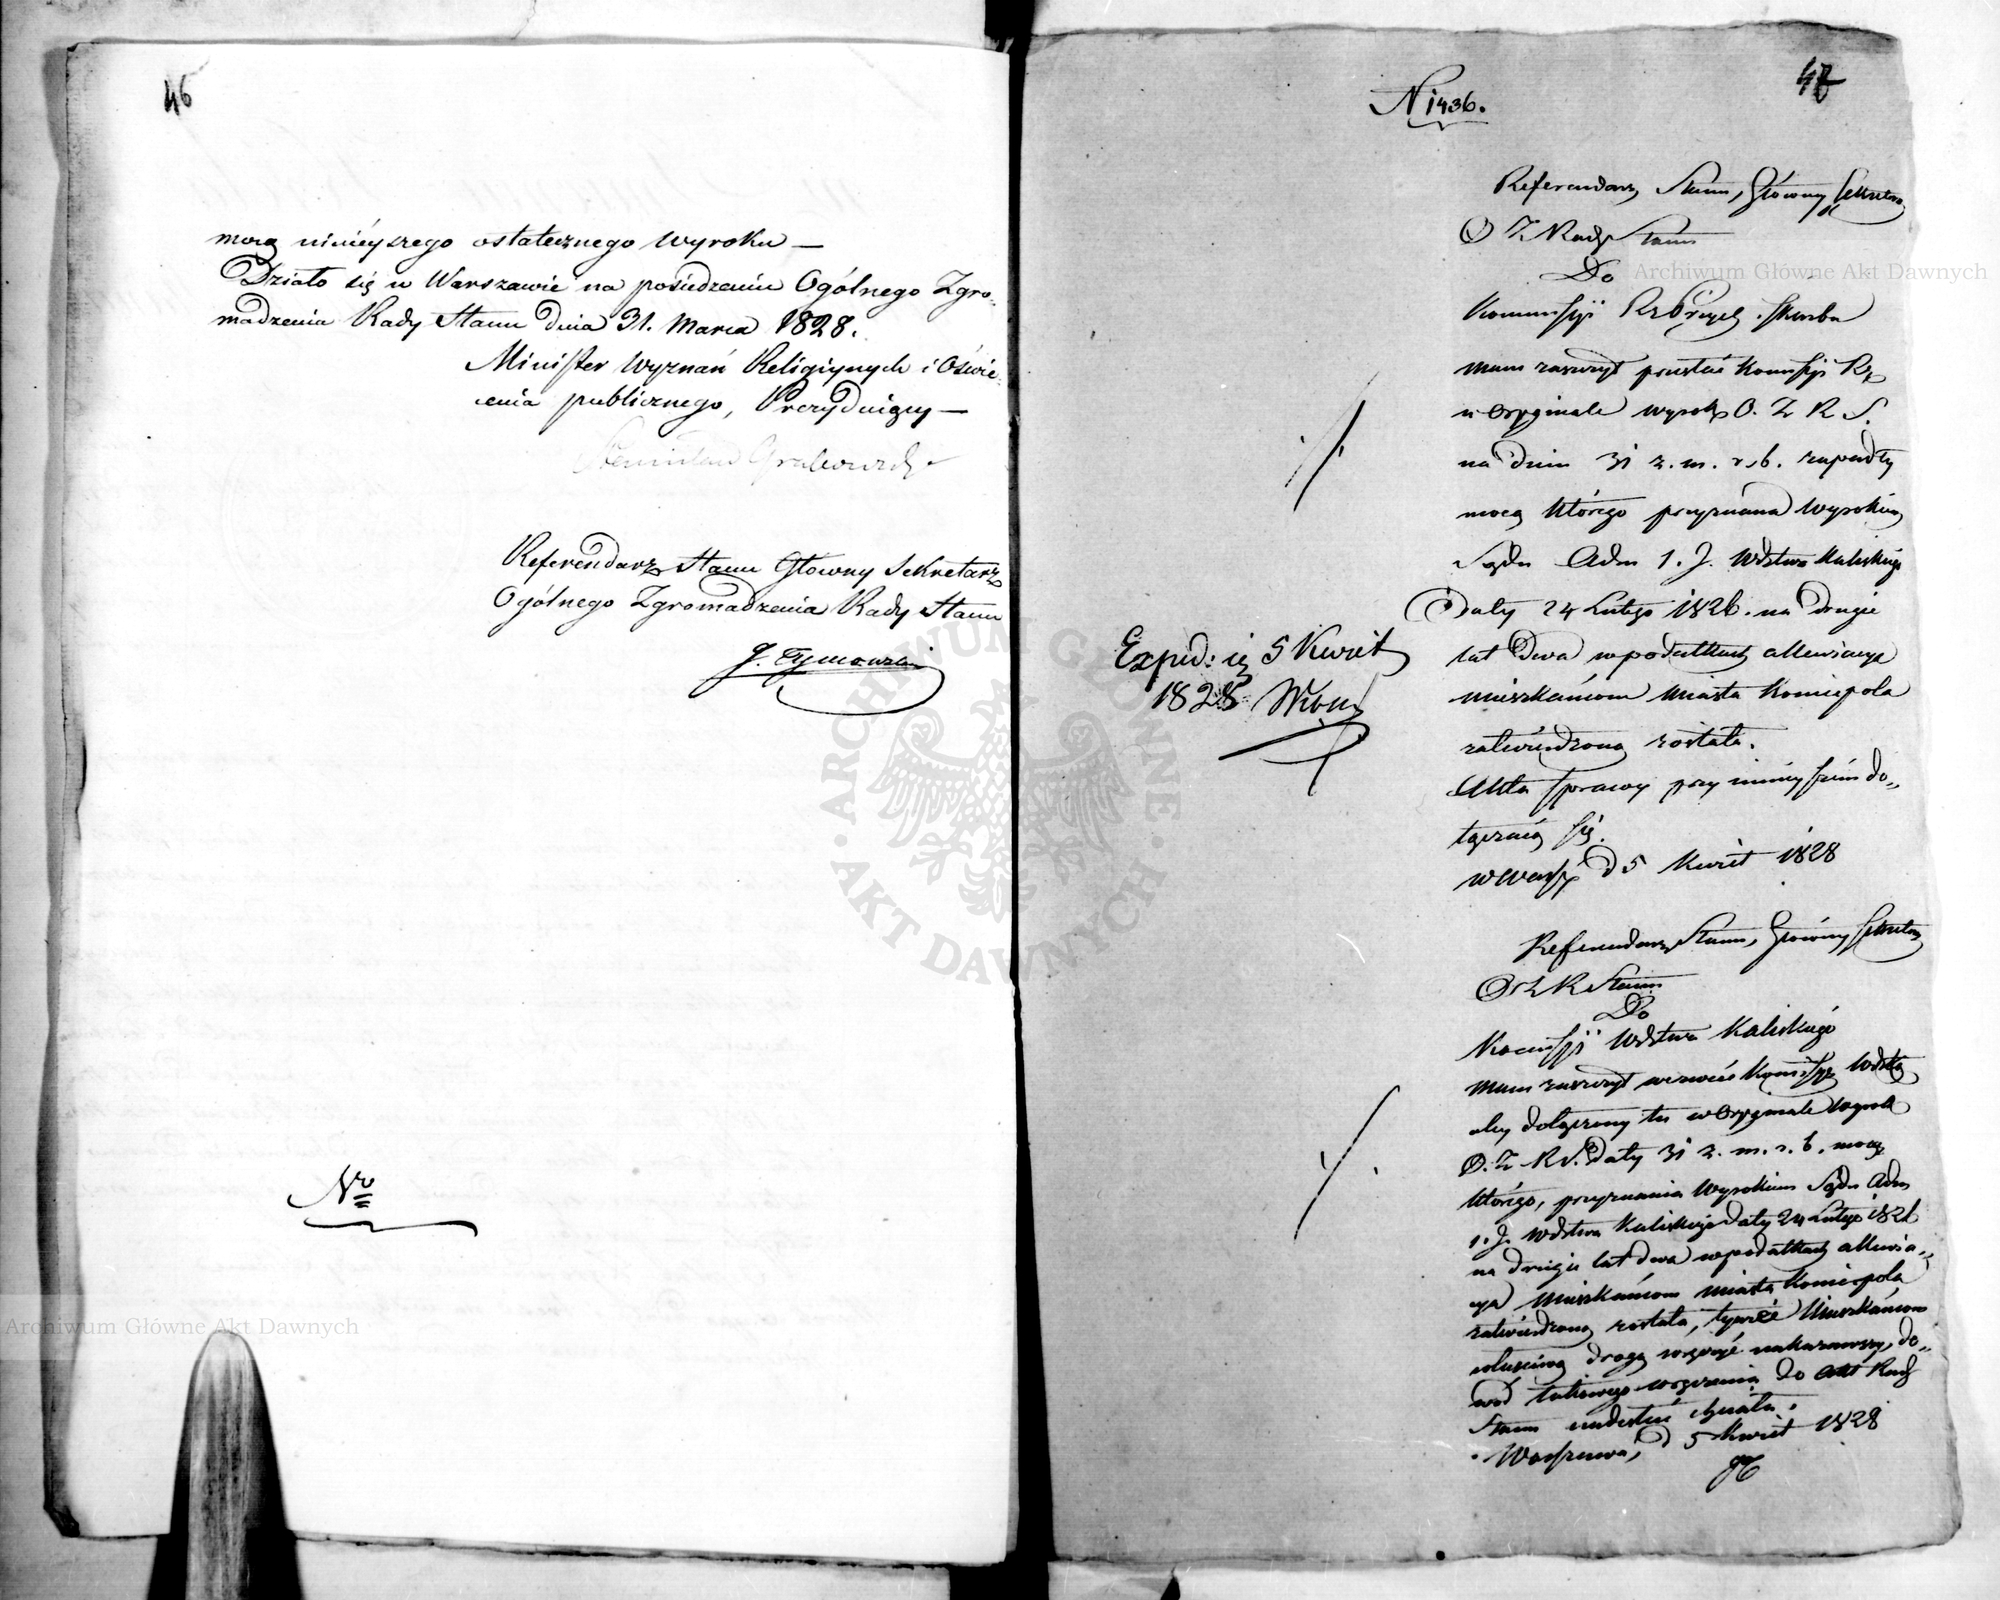 46
mocą ninieyszego ostatecznego Wyroku —
Działo się w Warszawie na posiedzeniu Ogólnego Zgro-
madzenia Rady Stanu dnia 31. Marca 1828.
Minister Wyznań Religiynych i Oświe-
cenia publicznego, Prezyduiący —
Stanisław Grabowski
Referendarz Stanu Głowny Sekretarz
Ogólnego Zgromadzenia Rady Stanu
J. Tymowski
Nro
47
N 1436.
Referendarz Stanu, Główny Sekretarz
O Z Rady Stanu
Do
Kommissji Rz Przych. Skarbu
mam zaszczyt przesłać Kommissji Rz
w oryginale wyrok O. Z R S.
na dniu 31 z. m. r. b. zapadły
mocą którego przyznana Wyrokiem
Sądu Adm 1. J. Wdztwa Kaliskiego
daty 24 Lutego 1826. na drugie
lat dwa w podatkach allewiacya
mieszkańcom Miasta Koniecpola
zatwierdzoną została.
Akta sprawy przy ninieyszem do-
łączaią się.
w Warsz d 5 Kwiet 1828
Exped: ię 5 Kwiet
1828
Referendarz Stanu, Główny Sekretarz
O Z R Stanu
Do
Kommissji Wdztwa Kaliskiego
mam zaszczyt wezwać Kommissyę Wdzką
aby dołączony tu w Oryginale Wyrok
O. Z R S. daty 31 z. m. r. b. mocą
którego, przyznania Wyrokiem Sądu Adm
1. J. Wdztwa Kaliskiego daty 24 Lutego 1826
na drugie lat dwa w podatkach allewia-
cya Mieszkańcom miasta Koniecpola
zatwierdzoną została, tymże Mieszkańcom
właściwą drogą wręczyć nakazawszy, do-
wód takowego wręczenia do Akt Rady
Stanu nadesłać chciała.
Warszawa, d 5 Kwiet 1828